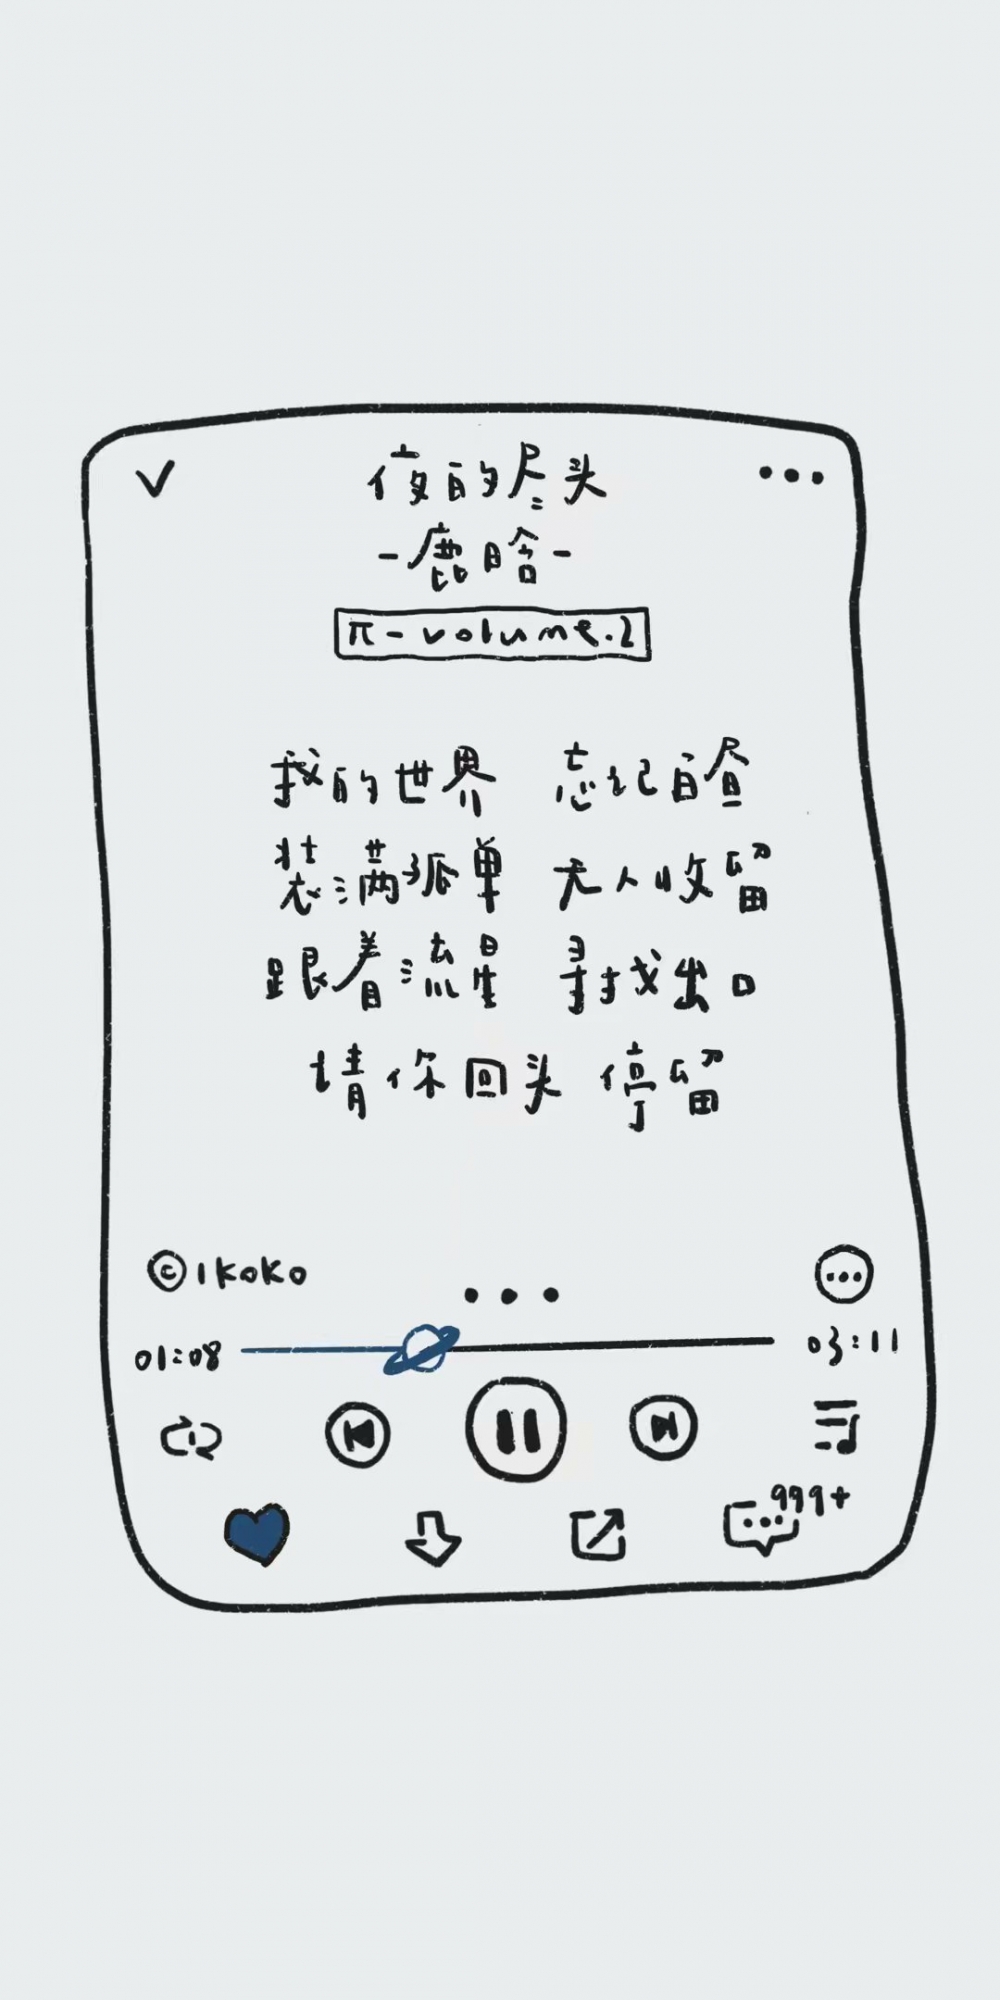 夜的尽头
-鹿晗-
π-volume.2
我的世界 忘记白昼
装满孤单 无人收留
跟着流星 寻找出口
请你回头 停留
©IKOKO
01:08 03:11
999+